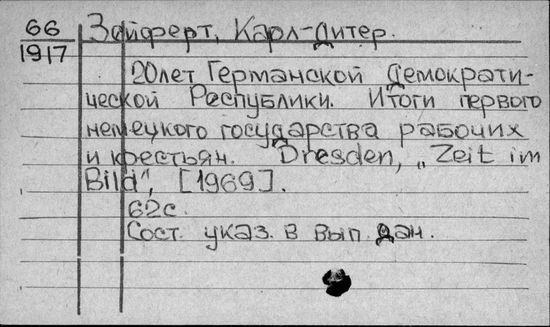 66
1917
Зайферт, Карл-Дитер.
20 лет Германской Демократи-
ческой Республики. Итоги первого
немецкого государства рабочих
и крестьян. Dresden, „Zeit im
Bild", [1969].
62с.
Сост. указ. в вып. дан.